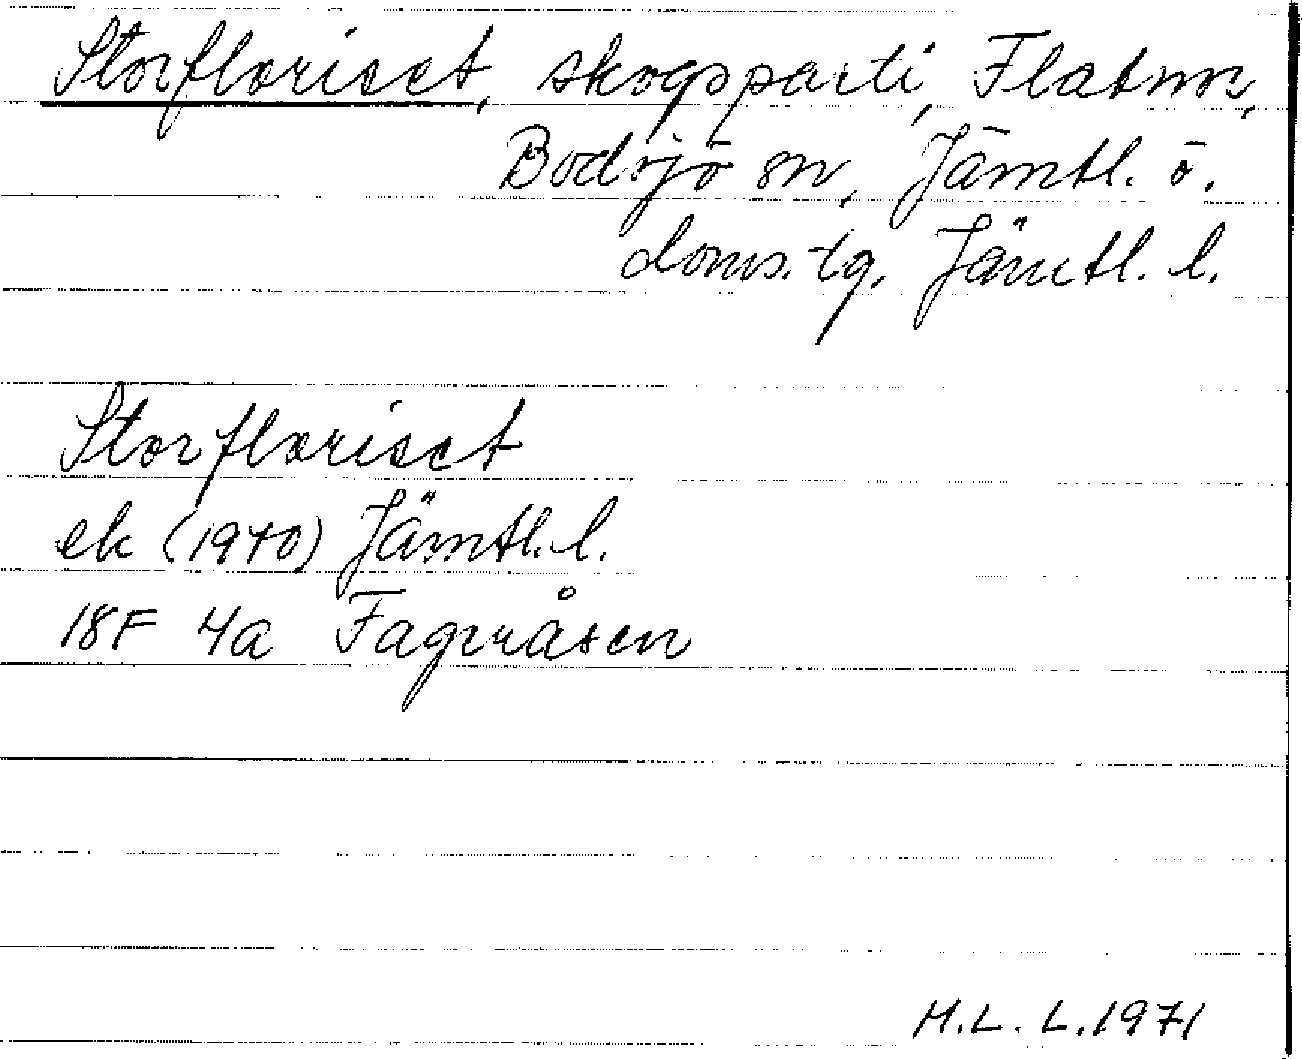 Storfloriset, skogsparti, Flatnor,
Bodsjö sn, Jämtl. ö.
doms. tg. Jämtl. l.
Storfloriset
ek (1970) Jämtl. l.
18F 4a Fageråsen
H.L. L. 1971